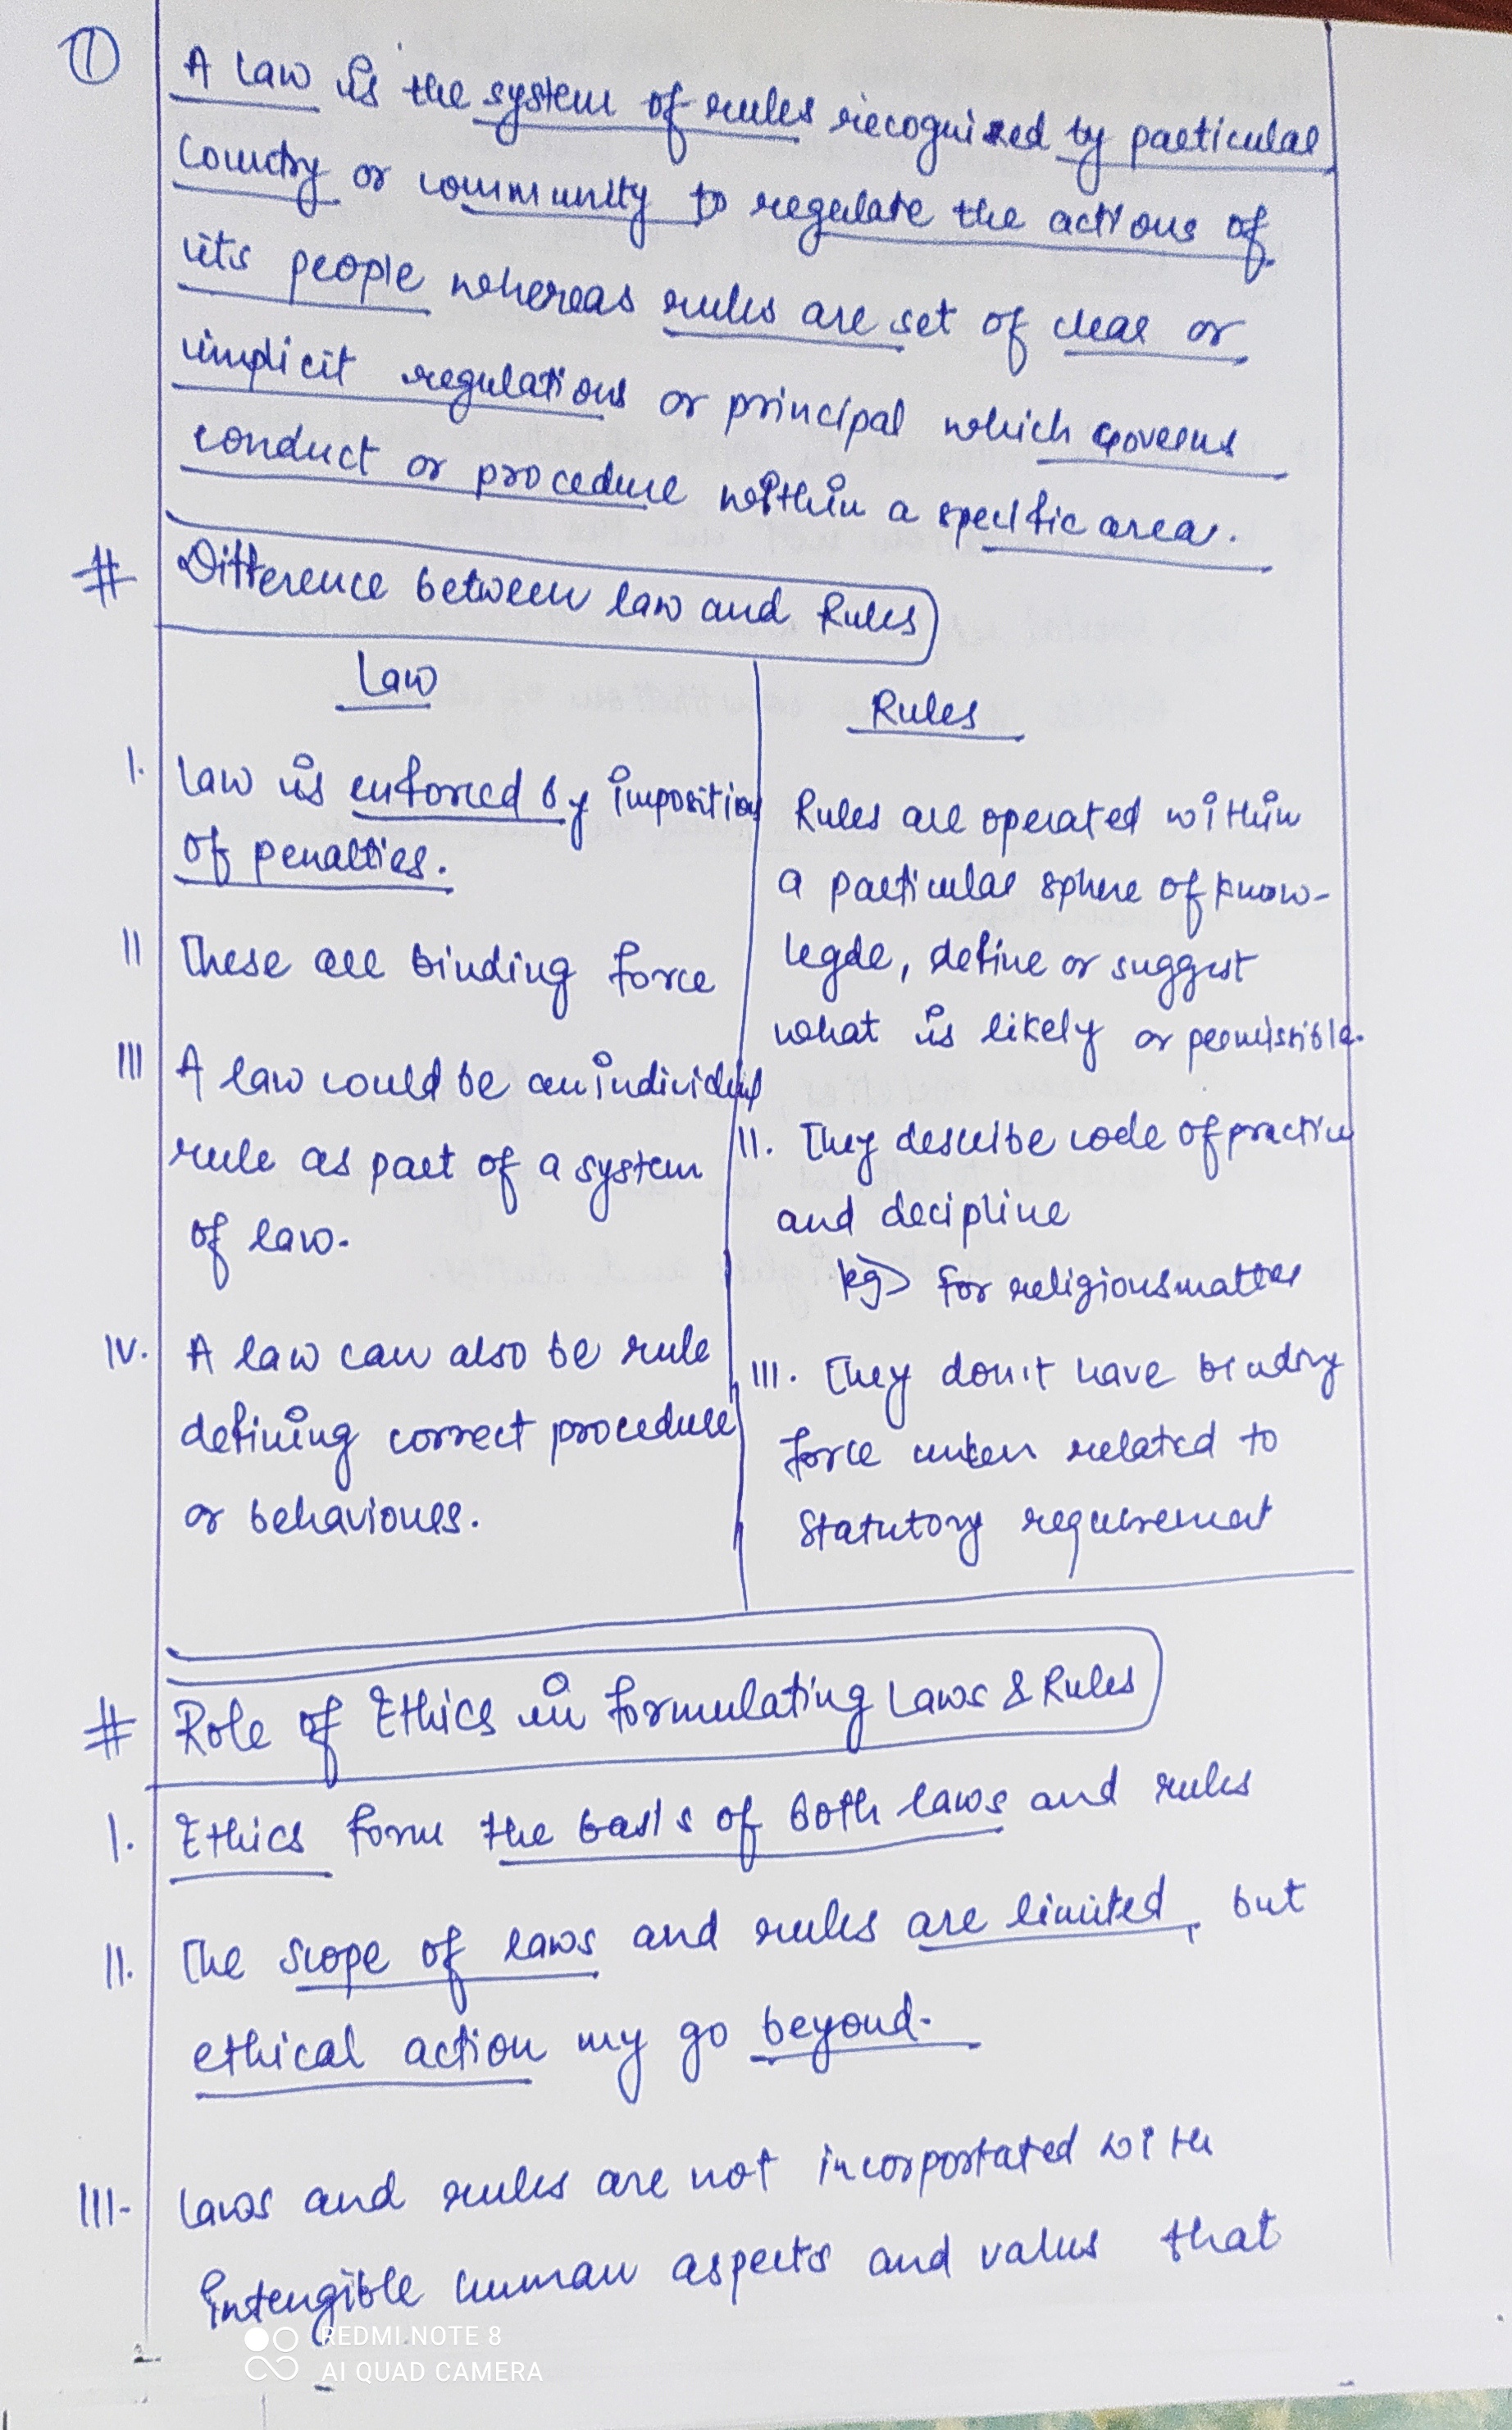 ①
A law is the system of rules recognized by particular
Country or community to regulate the actions of
its people whereas rules are set of clear or
implicit regulations or principal which governs
conduct or procedure within a specific area.
# Difference between law and Rules
Law
I. Law is enforced by imposition
of penalties.
II These are binding force
III A law could be an individual
rule as part of a system
of law.
IV. A law can also be rule
defining correct procedure
or behaviours.
Rules
Rules are operated within
a particular sphere of know-
legde, define or suggest
what is likely or permissible.
II. They describe code of practice
and decipline
Eg> for religious matter
III. They don't have binding
force unless related to
Statutory requirement
# Role of Ethics in formulating Laws & Rules
I. Ethics form the basis of both laws and rules
II. The scope of laws and rules are limited, but
ethical action my go beyond.
III- Laws and rules are not incorportated with
intengible human aspects and values that
REDMI NOTE 8
AI QUAD CAMERA